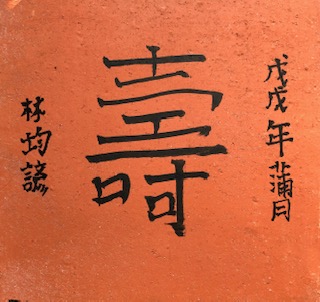 戊戌年蒲月
壽
林均諺